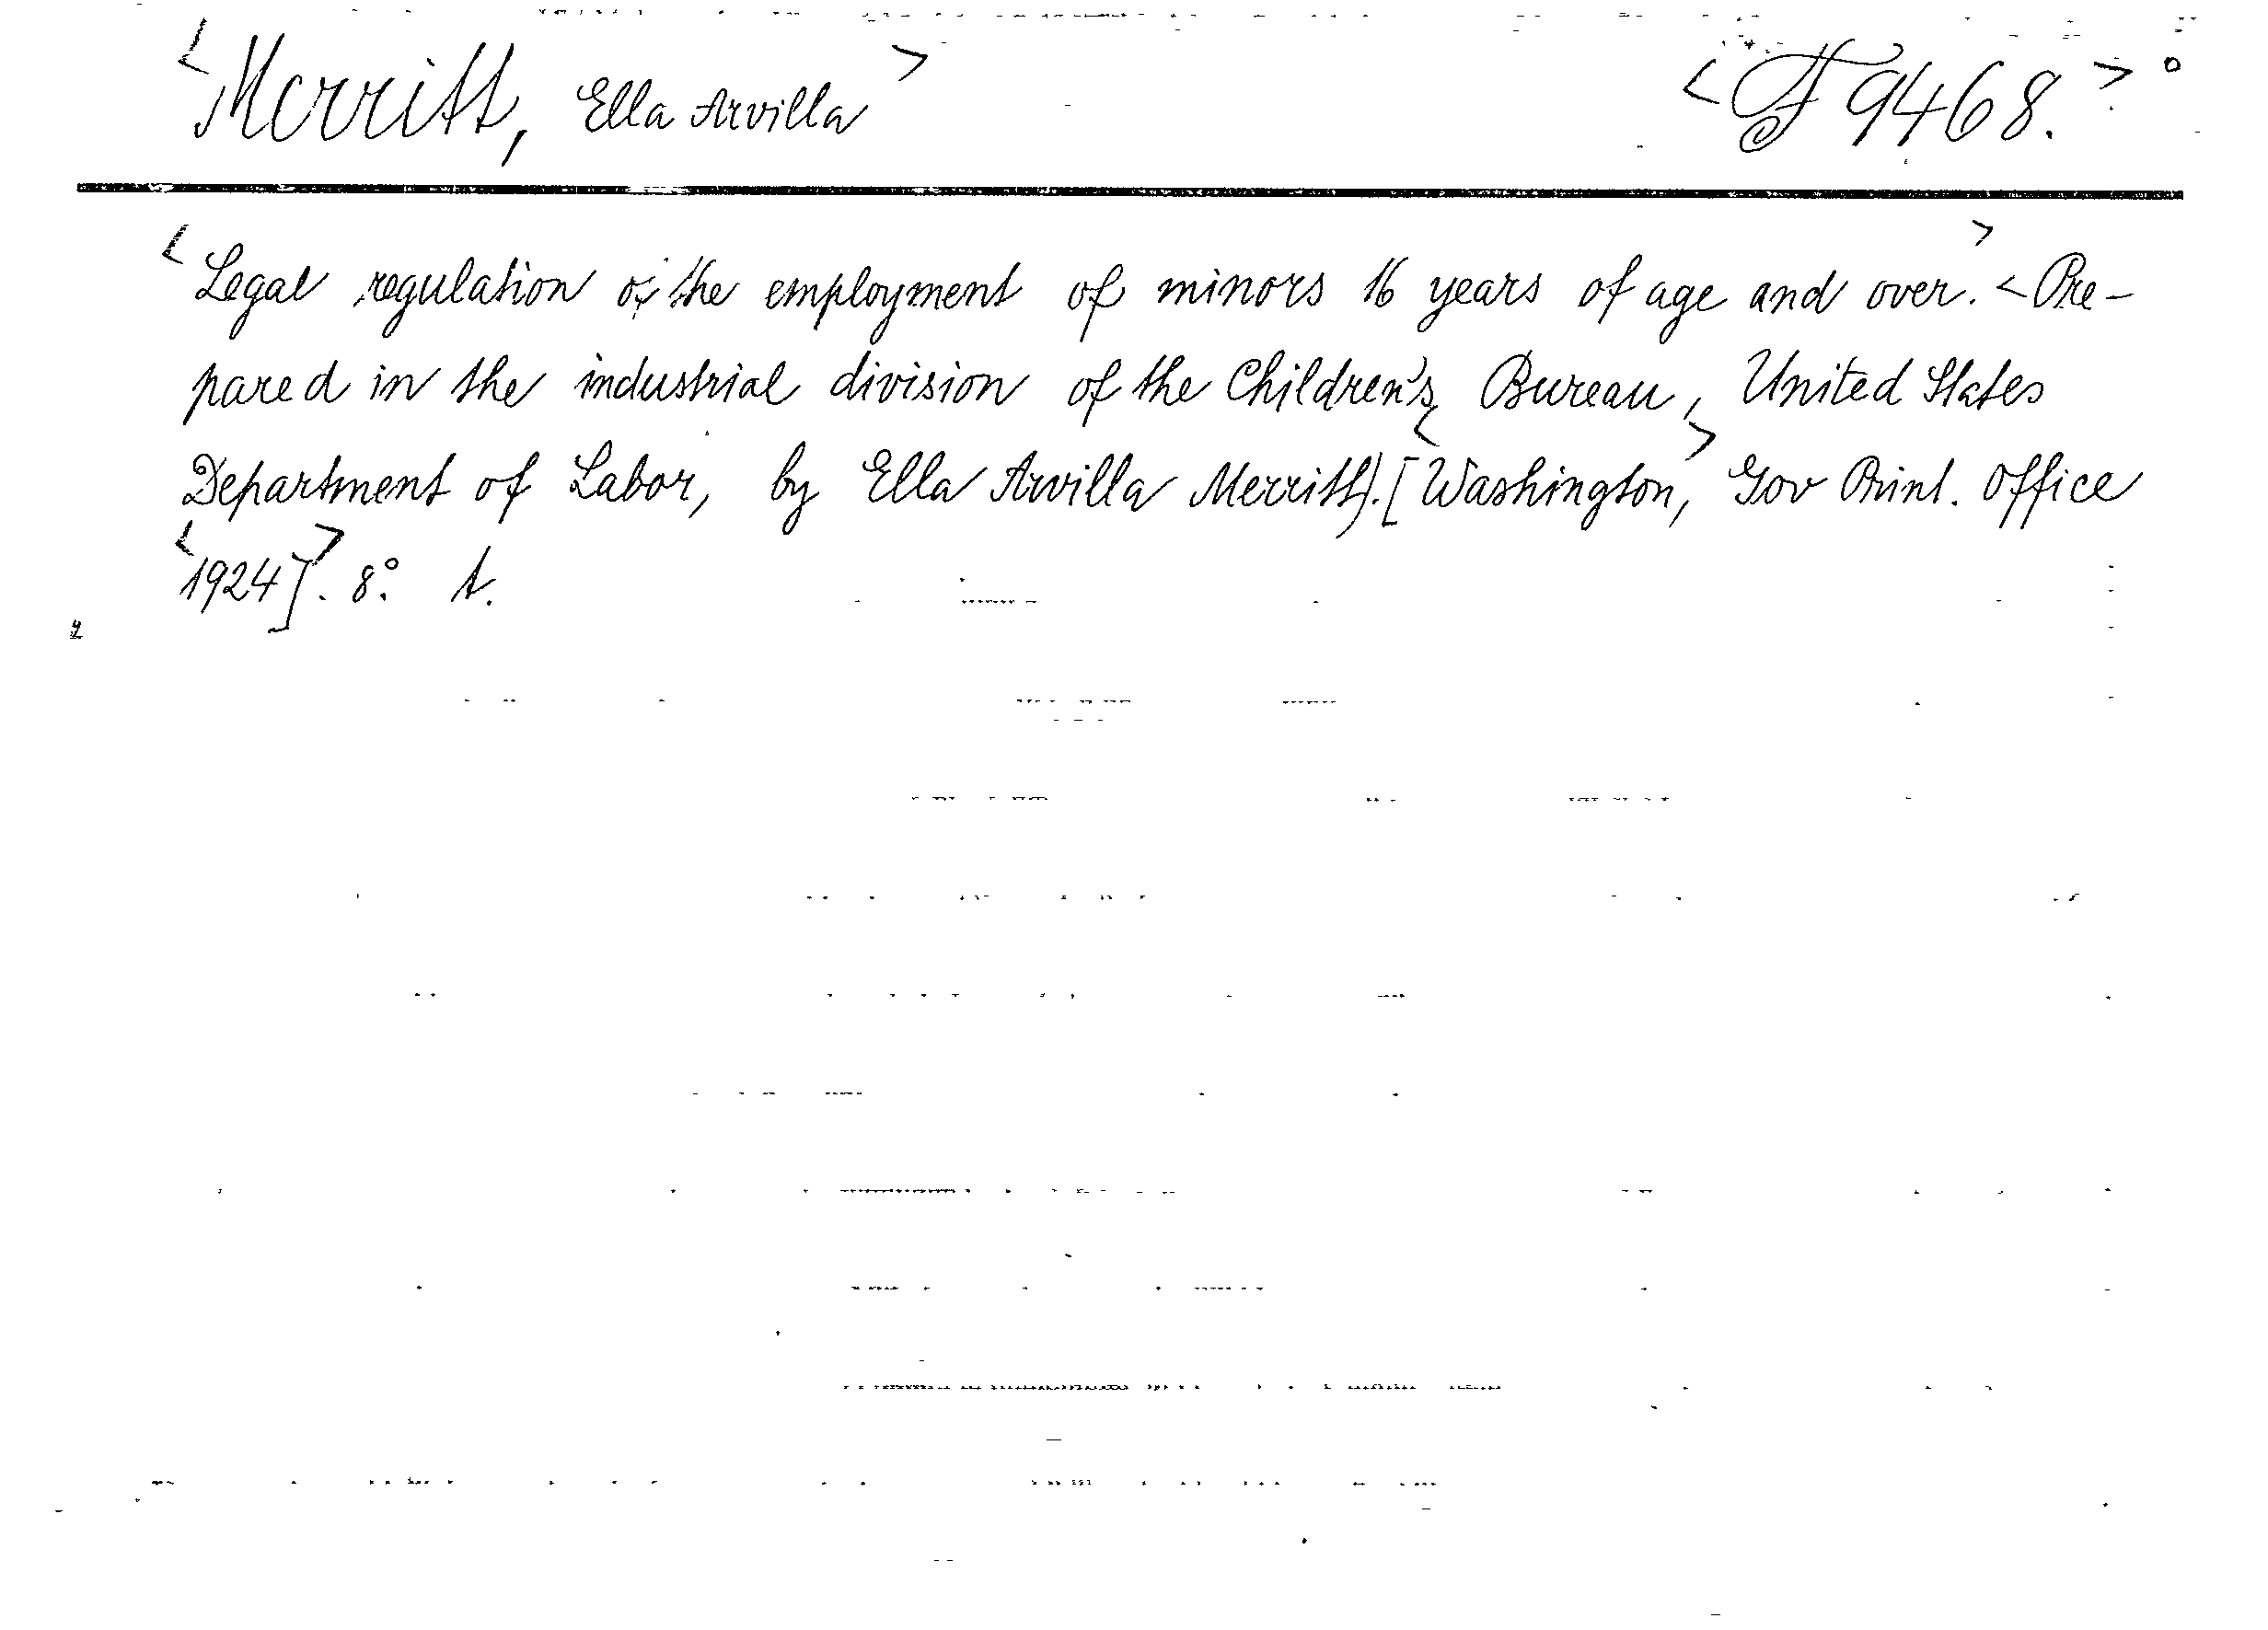 <Merritt, Ella Arvilla> <F 9468.>°
<Legal regulation of the employment of minors 16 years of age and over.> <Pre-
pared in the industrial division of the Children's Bureau, United States
Department of Labor, by Ella Arvilla Merritt). [<Washington,> Gov Print. Office
<1924].> 8° t.